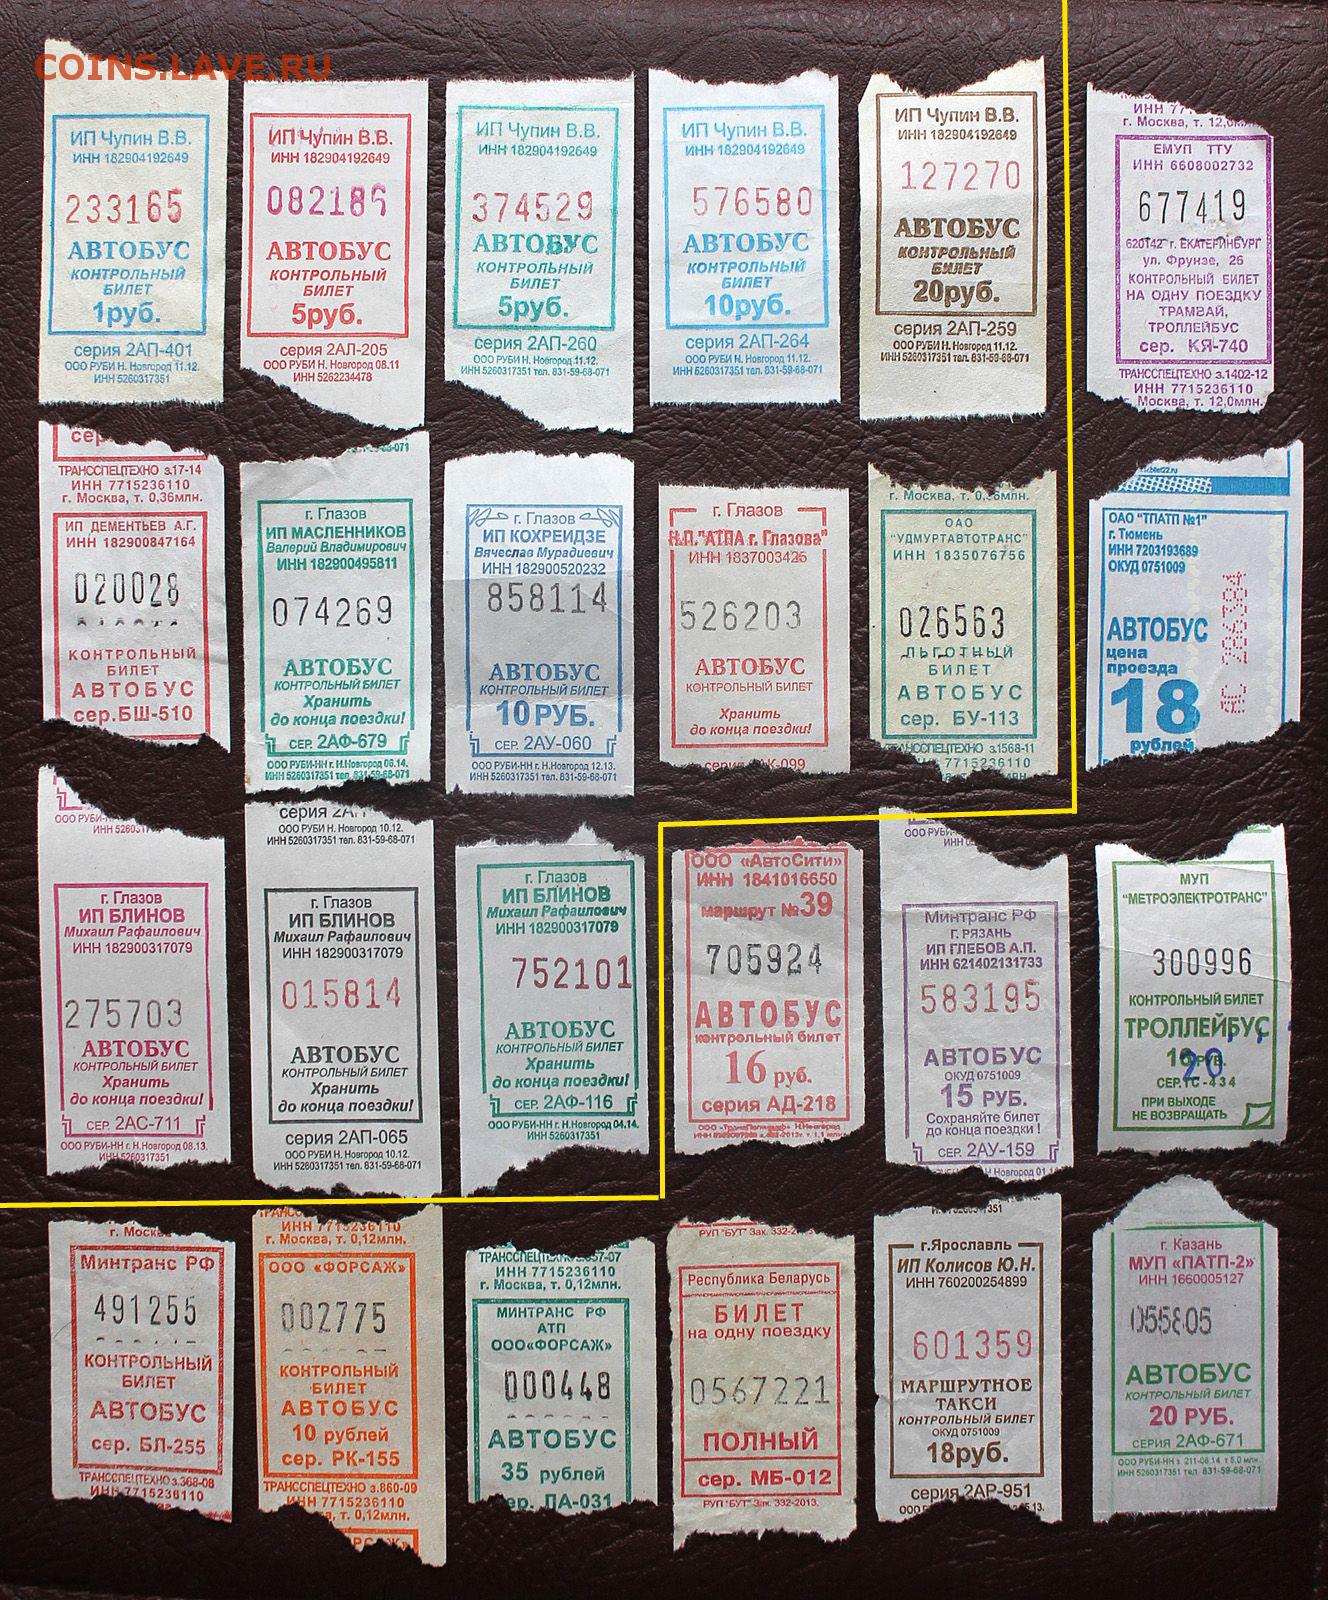 COINS.LAVE.RU
ИП Чупин В.В.
ИНН 182904192649
233165
АВТОБУС
КОНТРОЛЬНЫЙ
БИЛЕТ
1руб.
серия 2АП-401
ООО РУБИ Н. Новгород 11.12.
ИНН 5260317351
ИП Чупин В.В.
ИНН 182904192649
082186
АВТОБУС
КОНТРОЛЬНЫЙ
БИЛЕТ
5руб.
серия 2АЛ-205
ООО РУБИ Н. Новгород 08.11
ИНН 5262234478
ИП Чупин В.В.
ИНН 182904192649
374529
АВТОБУС
КОНТРОЛЬНЫЙ
БИЛЕТ
5руб.
серия 2АП-260
ООО РУБИ Н. Новгород 11.12.
ИНН 5260317351 тел. 831-59-68-071
ИП Чупин В.В.
ИНН 182904192649
576580
АВТОБУС
КОНТРОЛЬНЫЙ
БИЛЕТ
10руб.
серия 2АП-264
ООО РУБИ N. Новгород 11.12.
ИНН 5260317351 тел. 831-59-68-071
ИП Чупин В.В.
ИНН 182904192649
127270
АВТОБУС
КОНТРОЛЬНЫЙ
БИЛЕТ
20руб.
серия 2АП-259
ООО РУБИ Н. Новгород 11.12.
ИНН 5260317351 тел. 831-59-68-071
г. Москва, т. 12,0млн.
ЕМУП ТТУ
ИНН 6608002732
677419
620142 г. ЕКАТЕРИНБУРГ
ул. Фрунзе, 26
КОНТРОЛЬНЫЙ БИЛЕТ
НА ОДНУ ПОЕЗДКУ
ТРАМВАЙ,
ТРОЛЛЕЙБУС
сер. КЯ-740
ТРАНССПЕЦТЕХНО з.1402-12
ИНН 7715236110
Москва, т. 12,0млн.
сер
ТРАНССПЕЦТЕХНО з.17-14
ИНН 7715236110
г. Москва, т. 0,36млн.
ИП ДЕМЕНТЬЕВ А.Г.
ИНН 182900847164
020028
КОНТРОЛЬНЫЙ
БИЛЕТ
АВТОБУС
сер.БШ-510
г. Глазов
ИП МАСЛЕННИКОВ
Валерий Владимирович
ИНН 182900495811
074269
АВТОБУС
КОНТРОЛЬНЫЙ БИЛЕТ
Хранить
до конца поездки!
СЕР. 2АФ-679
ООО РУБИ-НН г. Н.Новгород 06.14.
ИНН 5260317351 тел. 831-59-68-071
г. Глазов
ИП КОХРЕИДЗЕ
Вячеслав Мурадиевич
ИНН 182900520232
858114
АВТОБУС
КОНТРОЛЬНЫЙ БИЛЕТ
10 РУБ.
СЕР. 2АУ-060
ООО РУБИ-НН г. Н.Новгород 12.13.
ИНН 5260317351 тел. 831-59-68-071
г. Глазов
Н.П."АТПА г. Глазова"
ИНН 1837003426
526203
АВТОБУС
КОНТРОЛЬНЫЙ БИЛЕТ
Хранить
до конца поездки!
г. Москва, т. 0,36млн.
ОАО
"УДМУРТАВТОТРАНС"
ИНН 1835076756
026563
ЛЬГОТНЫЙ
БИЛЕТ
АВТОБУС
сер. БУ-113
ТРАНССПЕЦТЕХНО з.1568-11
ИНН 7715236110
ОАО "ТПАТП №1"
г. Тюмень
ИНН 7203193689
ОКУД 0751009
АВТОБУС
цена
проезда
18
рублей
г. Глазов
ИП БЛИНОВ
Михаил Рафаилович
ИНН 182900317079
275703
АВТОБУС
КОНТРОЛЬНЫЙ БИЛЕТ
Хранить
до конца поездки!
СЕР. 2АС-711
ООО РУБИ-НН г. Н.Новгород 08.13.
ИНН 5260317351 тел. 831-59-68-071
ООО РУБИ Н. Новгород 10.12.
ИНН 5260317351 тел. 831-59-68-071
г. Глазов
ИП БЛИНОВ
Михаил Рафаилович
ИНН 182900317079
015814
АВТОБУС
КОНТРОЛЬНЫЙ БИЛЕТ
Хранить
до конца поездки!
серия 2АП-065
ООО РУБИ Н. Новгород 10.12.
ИНН 5260317351 тел. 831-59-68-071
г. Глазов
ИП БЛИНОВ
Михаил Рафаилович
ИНН 182900317079
752101
АВТОБУС
КОНТРОЛЬНЫЙ БИЛЕТ
Хранить
до конца поездки!
СЕР. 2АФ-116
ООО РУБИ-НН г. Н.Новгород 04.14.
ИНН 5260317351
ООО «АвтоСити»
ИНН 1841016650
маршрут №39
705924
АВТОБУС
контрольный билет
16 руб.
серия АД-218
Минтранс РФ
Г. РЯЗАНЬ
ИП ГЛЕБОВ А.П.
ИНН 621402131733
583195
АВТОБУС
ОКУД 0751009
15 РУБ.
Сохраняйте билет
до конца поездки !
СЕР. 2АУ-159
МУП
"МЕТРОЭЛЕКТРОТРАНС"
300996
КОНТРОЛЬНЫЙ БИЛЕТ
ТРОЛЛЕЙБУС
20
СЕР.ТС-434
ПРИ ВЫХОДЕ
НЕ ВОЗВРАЩАТЬ
г. Москва
Минтранс РФ
491255
КОНТРОЛЬНЫЙ
БИЛЕТ
АВТОБУС
сер. БЛ-255
ТРАНССПЕЦТЕХНО з.368-08
ИНН 7715236110
ИНН 7715236110
г. Москва, т. 0,12млн.
ООО «ФОРСАЖ»
002775
КОНТРОЛЬНЫЙ
БИЛЕТ
АВТОБУС
10 рублей
сер. РК-155
ТРАНССПЕЦТЕХНО з.860-09
ИНН 7715236110
г. Москва, т. 0,12млн.
ИНН 7715236110
г. Москва, т. 0,12млн.
МИНТРАНС РФ
АТП
ООО«ФОРСАЖ»
000448
АВТОБУС
35 рублей
сер. ЛА-031
РУП "БУТ" Зак. 332-2013.
Республика Беларусь
БИЛЕТ
на одну поездку
0567221
ПОЛНЫЙ
сер. МБ-012
РУП "БУТ" Зак. 332-2013.
г.Ярославль
ИП Колисов Ю.Н.
ИНН 760200254899
601359
МАРШРУТНОЕ
ТАКСИ
КОНТРОЛЬНЫЙ БИЛЕТ
ОКУД 0751009
18руб.
серия 2АР-951
г. Казань
МУП «ПАТП-2»
ИНН 1660005127
055805
АВТОБУС
КОНТРОЛЬНЫЙ БИЛЕТ
20 РУБ.
СЕРИЯ 2АФ-671
ООО РУБИ-НН з. 211-08.14. т 5,0 млн.
ИНН 5260317351 тел. 831-59-68-071